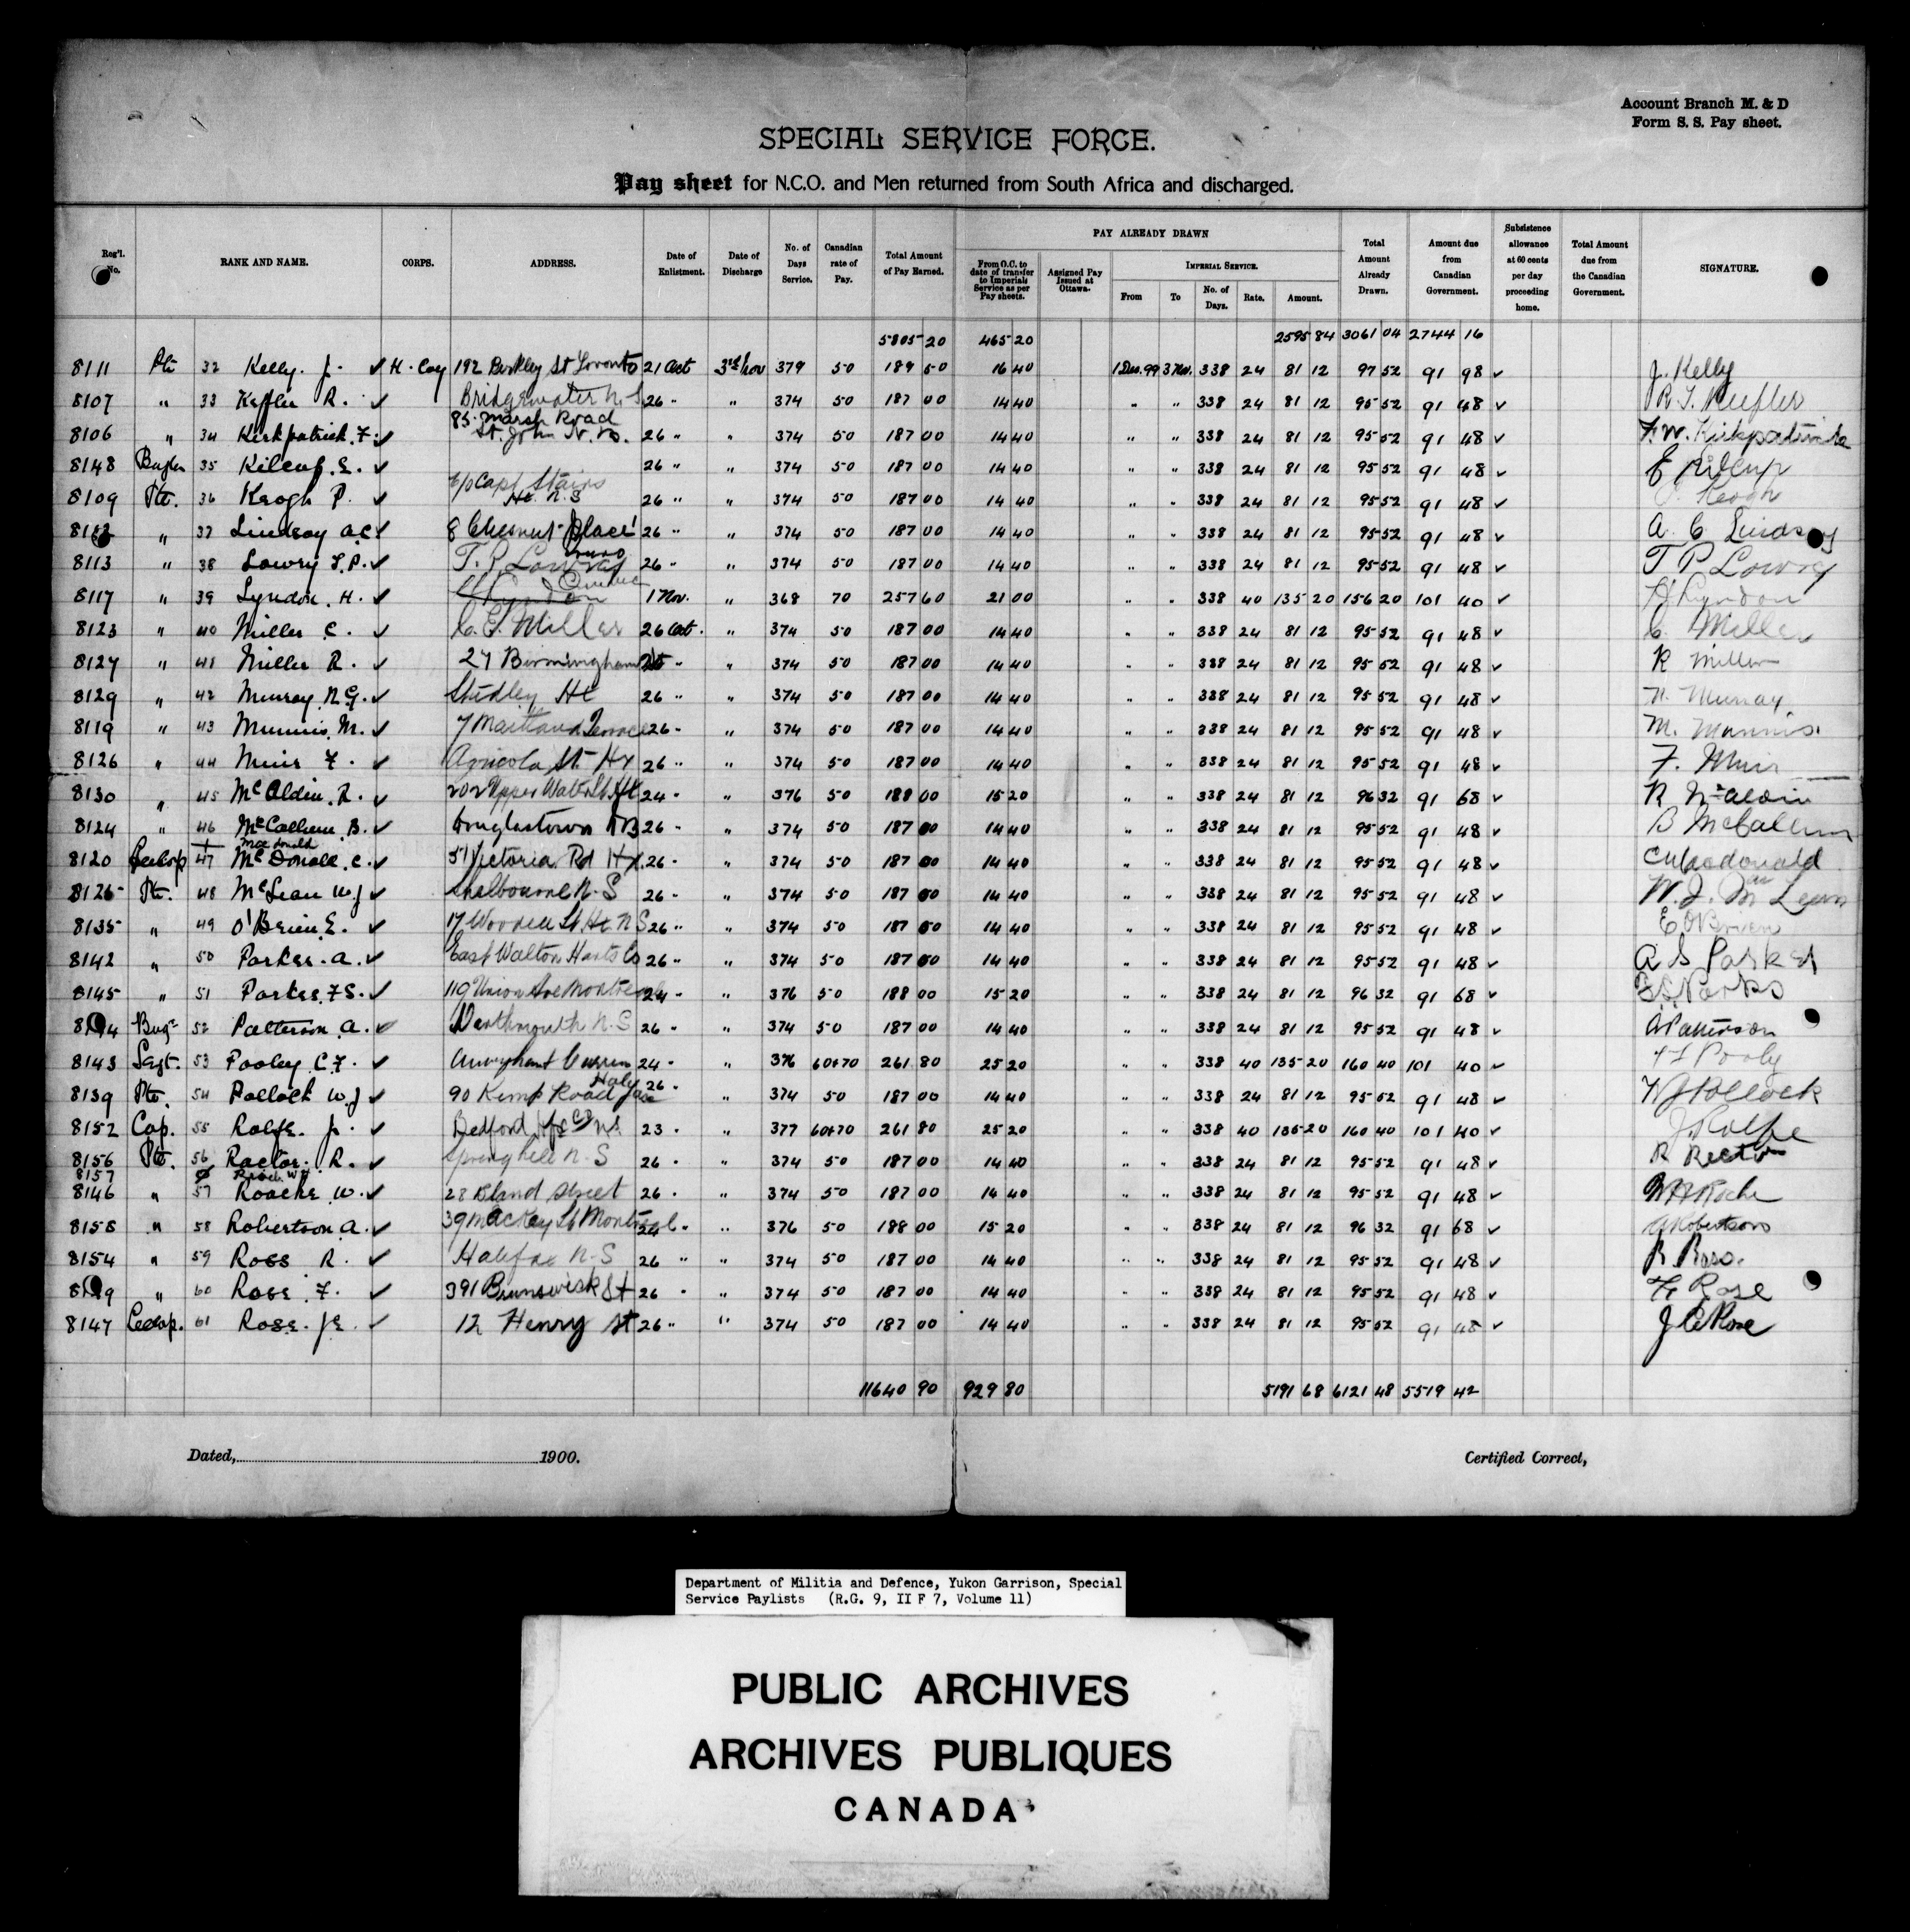 Account Branch M. & D
Form S. S. Pay sheet.
SPECIAL SERVICE FORCE.
Pay sheet for N.C.O. and Men returned from South Africa and discharged.
Reg'l. No. RANK AND NAME. CORPS. ADDRESS. Date of Enlistment. Date of Discharge No. of Days Service. Canadian rate of Pay. Total Amount of Pay Earned. PAY ALREADY DRAWN From O.C. to date of transfer to Imperials Service as per Pay sheets. Assigned Pay Issued at Ottawa. IMPERIAL SERVICE. From To No. of Days. Rate. Amount. Total Amount Already Drawn. Amount due from Canadian Government. Subsistence allowance at 60 cents per day proceeding home. Total Amount due from the Canadian Government. SIGNATURE.
5805 20 465 20 2595 84 3061 04 2744 16
8111 Pte 32 Kelly. J. ✓ H. Coy 192 Berkley St Toronto 21 Oct 3rd Nov 379 50 189 50 16 40 1 Dec. 99 3 Nov. 338 24 81 12 97 52 91 98 ✓ J. Kelly
8107 " 33 Keffler R. ✓ Bridgewater N.S 26 " " 374 50 187 00 14 40 " " 338 24 81 12 95 52 91 48 ✓
8106 " 34 Kirkpatrick. F. ✓ 85 Marsh Road St. John N.B. 26 " " 374 50 187 00 14 40 " " 338 24 81 12 95 52 91 48 ✓ F.W. Kirkpatrick
8148 Bugler 35 Kilcup. E. ✓ 26 " " 374 50 187 00 14 40 " " 338 24 81 12 95 52 91 48 ✓ E Kilcup
8109 Pte. 36 Keogh P. ✓ c/o Capt Stairs Hx. N.S 26 " " 374 50 187 00 14 40 " " 338 24 81 12 95 52 91 48 ✓ Keogh
" 37 Lindsay A.C ✓ 8 Chesnut Place 26 " " 374 50 187 00 14 40 " " 338 24 81 12 95 52 91 48 ✓ A. C Lindsay
8113 " 38 Lowry T.P. ✓ T. P. Lowry 26 " " 374 50 187 00 14 40 " " 338 24 81 12 95 52 91 48 ✓ T P Lowry
8117 " 39 Lyndon. H. ✓ Quebec 1 Nov. " 368 70 257 60 21 00 " " 338 40 135 20 156 20 101 40 ✓ H Lyndon
8123 " 40 Miller C. ✓ C. E. Miller 26 Oct. " 374 50 187 00 14 40 " " 338 24 81 12 95 52 91 48 ✓ C. Miller
8127 " 41 Miller R. ✓ 27 Birmingham St 26 " " 374 50 187 00 14 40 " " 338 24 81 12 95 52 91 48 ✓ R Miller
8129 " 42 Murray N.G. ✓ Studley Hx 26 " " 374 50 187 00 14 40 " " 338 24 81 12 95 52 91 48 ✓ N. Murray
8119 " 43 Munnis. M. ✓ 7 Maitland Terrace 26 " " 374 50 187 00 14 40 " " 338 24 81 12 95 52 91 48 ✓ M. Munnis.
8126 " 44 Muir F. ✓ Agricola St Hx 26 " " 374 50 187 00 14 40 " " 338 24 81 12 95 52 91 48 ✓ F. Muir
8130 " 45 McAldin. R. ✓ 202 Upper Water St Hx 24 " " 376 50 188 00 15 20 " " 338 24 81 12 96 32 91 68 ✓ R McAldin
8124 " 46 McCallum. B. ✓ Douglastown NB 26 " " 374 50 187 00 14 40 " " 338 24 81 12 95 52 91 48 ✓ B McCallum
MacDonald
8120 47 McDonald. C. ✓ 51 Victoria Rd Hx. 26 " " 374 50 187 00 14 40 " " 338 24 81 12 95 52 91 48 ✓ C Macdonald
8125 Pte. 48 McLean W.J ✓ Shelbourne N.S 26 " " 374 50 187 00 14 40 " " 338 24 81 12 95 52 91 48 ✓ W. J. McLean
8135 " 49 O'Brien. E. ✓ 17 Woodill St. Hx. N S 26 " " 374 50 187 00 14 40 " " 338 24 81 12 95 52 91 48 ✓ E. O'Brien
8142 " 50 Parker. A. ✓ East Walton Hants Co 26 " " 374 50 187 00 14 40 " " 338 24 81 12 95 52 91 48 ✓ A S Parker
8145 " 51 Parkes. F.S. ✓ 119 Union Ave Montreal 24 " " 376 50 188 00 15 20 " " 338 24 81 12 96 32 91 68 ✓ F.S. Parks
Bugr 52 Patterson A. ✓ Dartmouth N.S 26 " " 374 50 187 00 14 40 " " 338 24 81 12 95 52 91 48 ✓ A Patterson
8143 Sergt. 53 Pooley C.F. ✓ 24 " " 376 60+70 261 80 25 20 " " 338 40 135 20 160 40 101 40 ✓ Pooley
8139 Pte. 54 Pollock W.J ✓ 90 Kemp Road Halifax 26 " " 374 50 187 00 14 40 " " 338 24 81 12 95 52 91 48 ✓ W J Pollock
8152 Cap. 55 Rolfe. J. ✓ Bedford Hfx Co NS 23 " " 377 60+70 261 80 25 20 " " 338 40 135 20 160 40 101 40 ✓ J. Rolfe
8156 Pte. 56 Rector. R. ✓ Springhill N.S 26 " " 374 50 187 00 14 40 " " 338 24 81 12 95 52 91 48 ✓ R Rector
8157
8146 " 57 Roache W. ✓ 28 Bland Street 26 " " 374 50 187 00 14 40 " " 338 24 81 12 95 52 91 48 ✓ Roche
8158 " 58 Robertson A. ✓ 39 MacKay St Montreal 24 " " 376 50 188 00 15 20 " " 338 24 81 12 96 32 91 68 ✓ A Robertson
8154 " 59 Ross R. ✓ Halifax N.S 26 " " 374 50 187 00 14 40 " " 338 24 81 12 95 52 91 48 ✓ R. Ross.
" 60 Rose. F. ✓ 391 Brunswick St 26 " " 374 50 187 00 14 40 " " 338 24 81 12 95 52 91 48 ✓ F Rose
8147 61 Rose. J.E. ✓ 12 Henry St 26 " " 374 50 187 00 14 40 " " 338 24 81 12 95 52 91 48 ✓ Rose
11640 90 929 80 5191 68 6121 48 5519 42
Dated, 1900. Certified Correct,
Department of Militia and Defence, Yukon Garrison, Special
Service Paylists (R.G. 9, II F 7, Volume 11)
PUBLIC ARCHIVES
ARCHIVES PUBLIQUES
CANADA